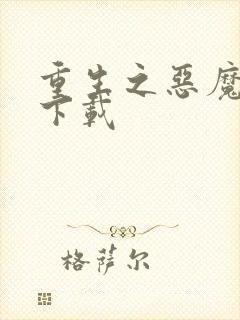 重生之惡魔
下載
格萨尔